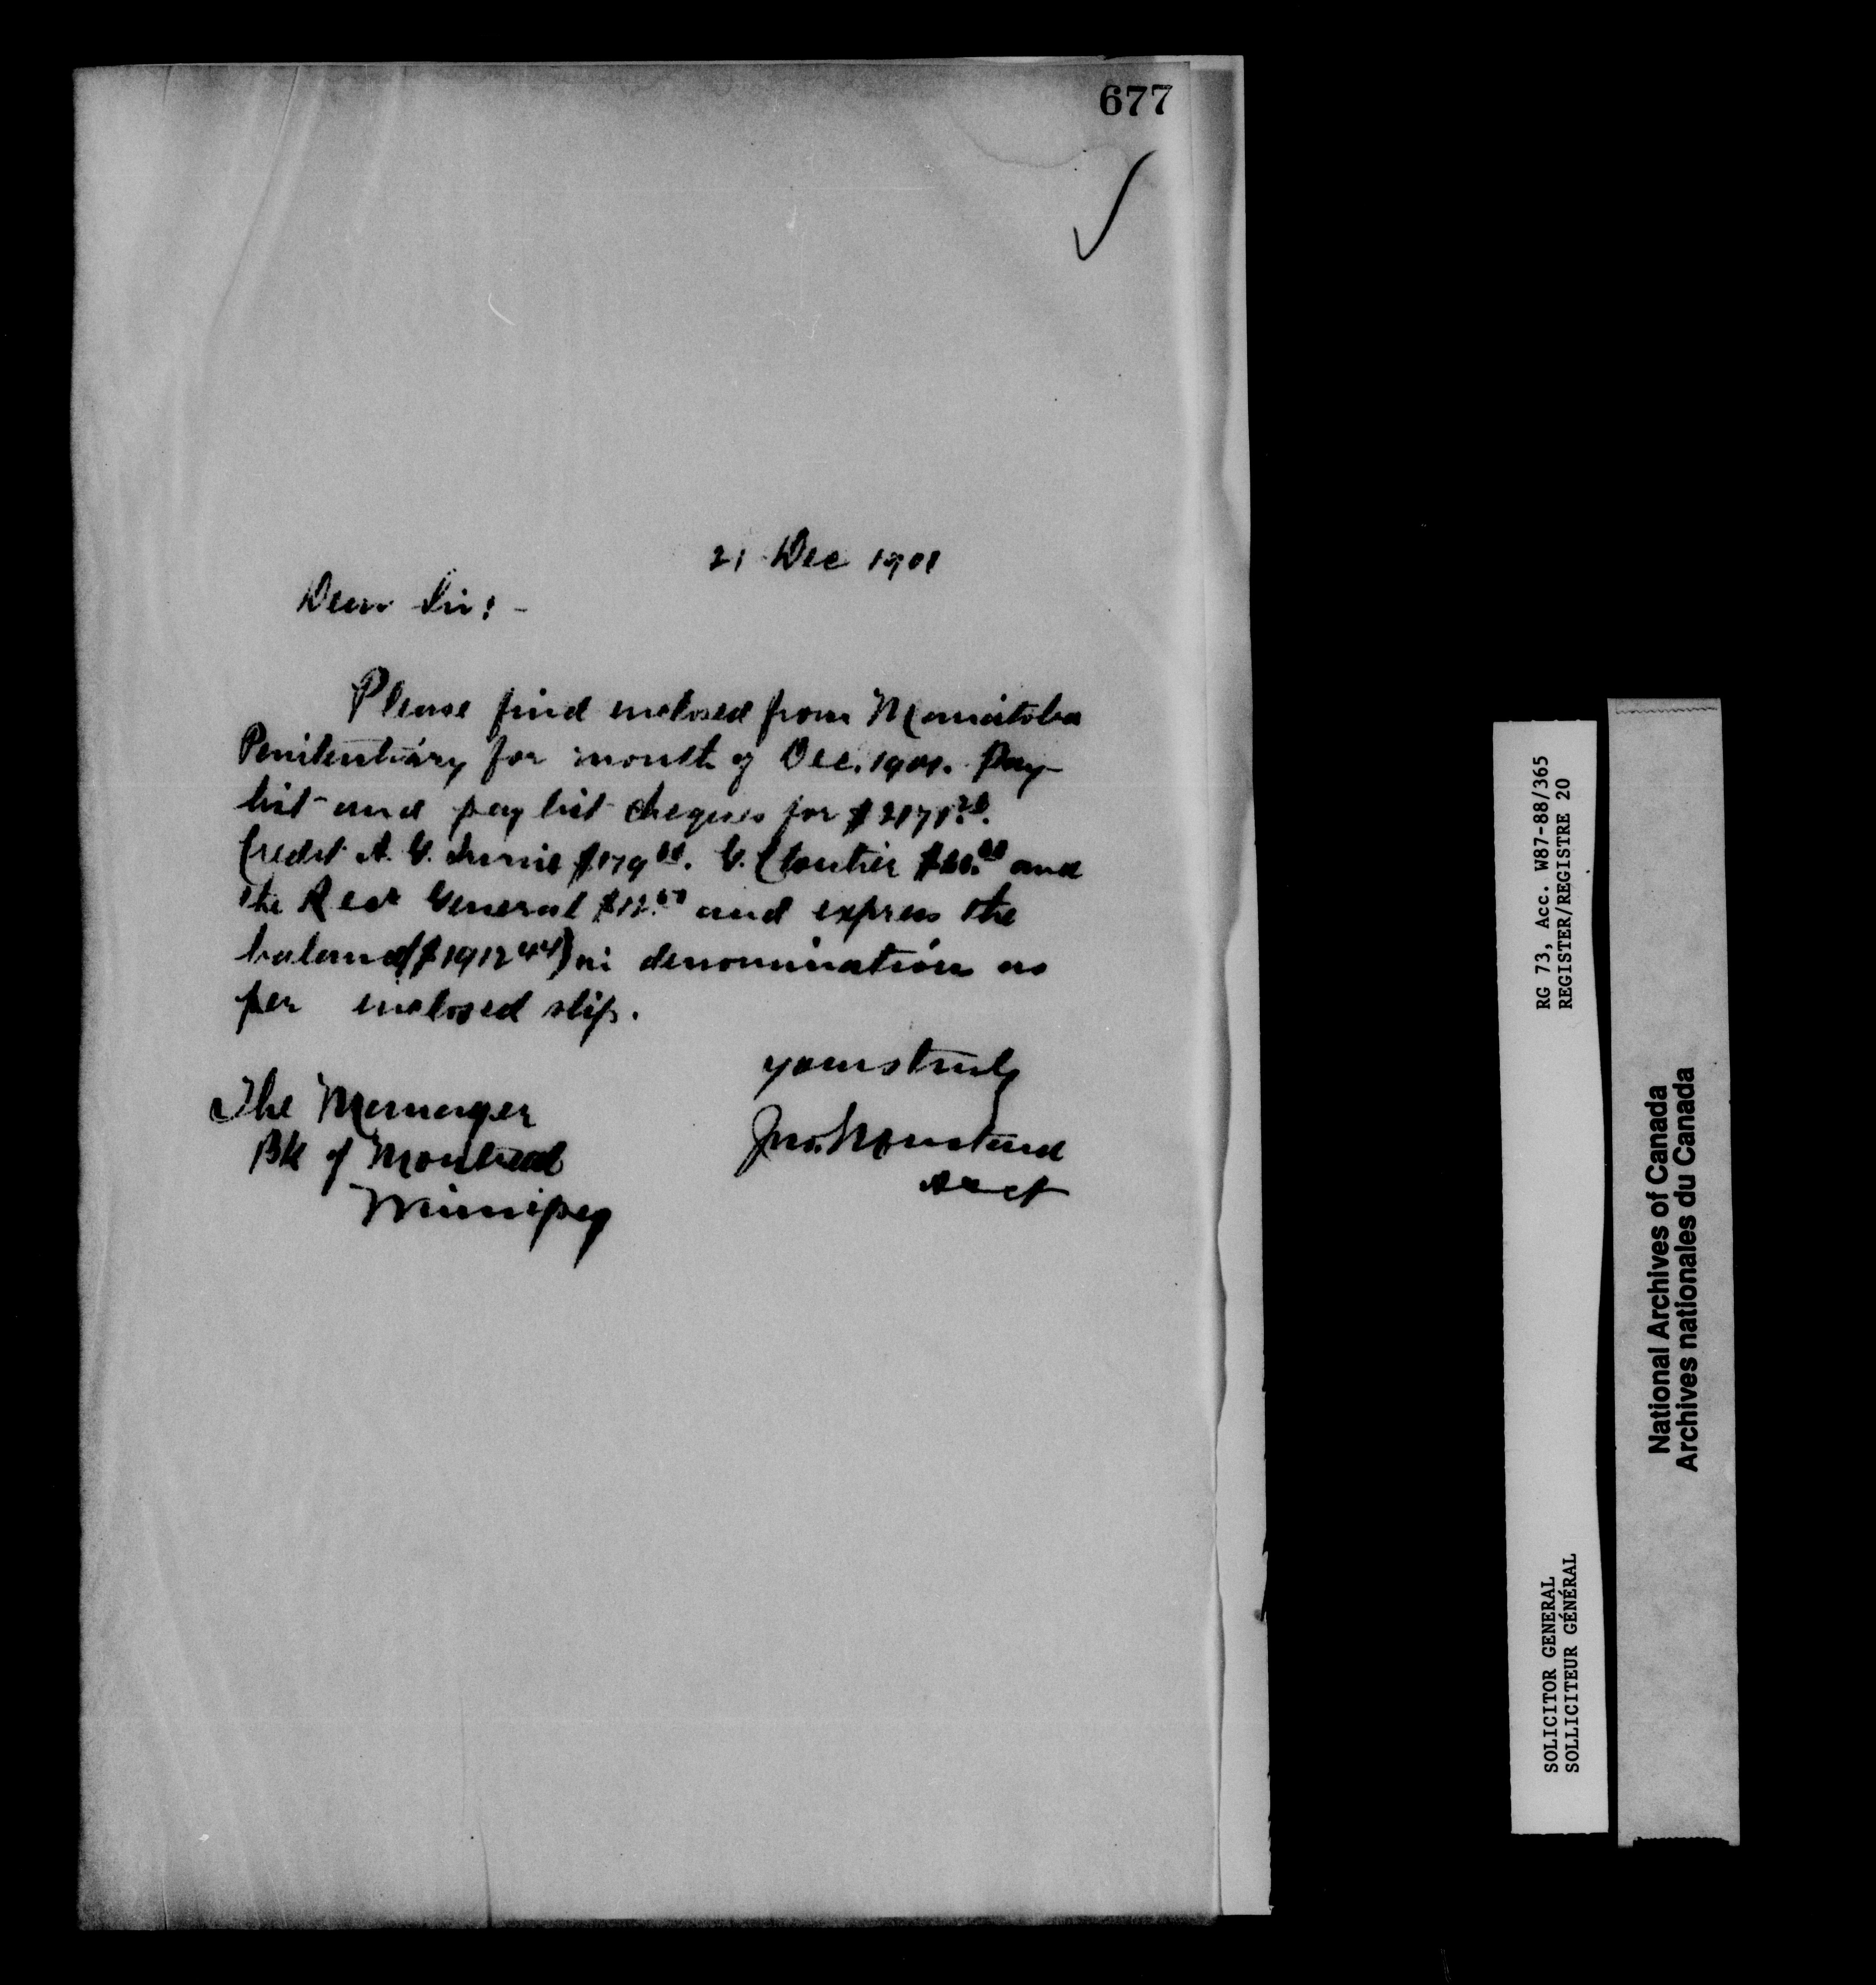 677
21 Dec 1901
Dear Sir:-
Please find enclosed from Manitoba
Penitentiary for month of Dec. 1901. Pay
list and pay list cheques for
Credit A. G. Irvine G. Cloutier $60.00 and
the Recr General and express the
balance ($1912 44) in denomination as
per enclosed slip.
yours truly
Jno. Mustard
Acct
The Manager
Bk of Montreal
Winnipeg
RG 73, Acc. W87-88/365
REGISTER/REGISTRE 20
SOLICITOR GENERAL
SOLLICITEUR GÉNÉRAL
National Archives of Canada
Archives nationales du Canada